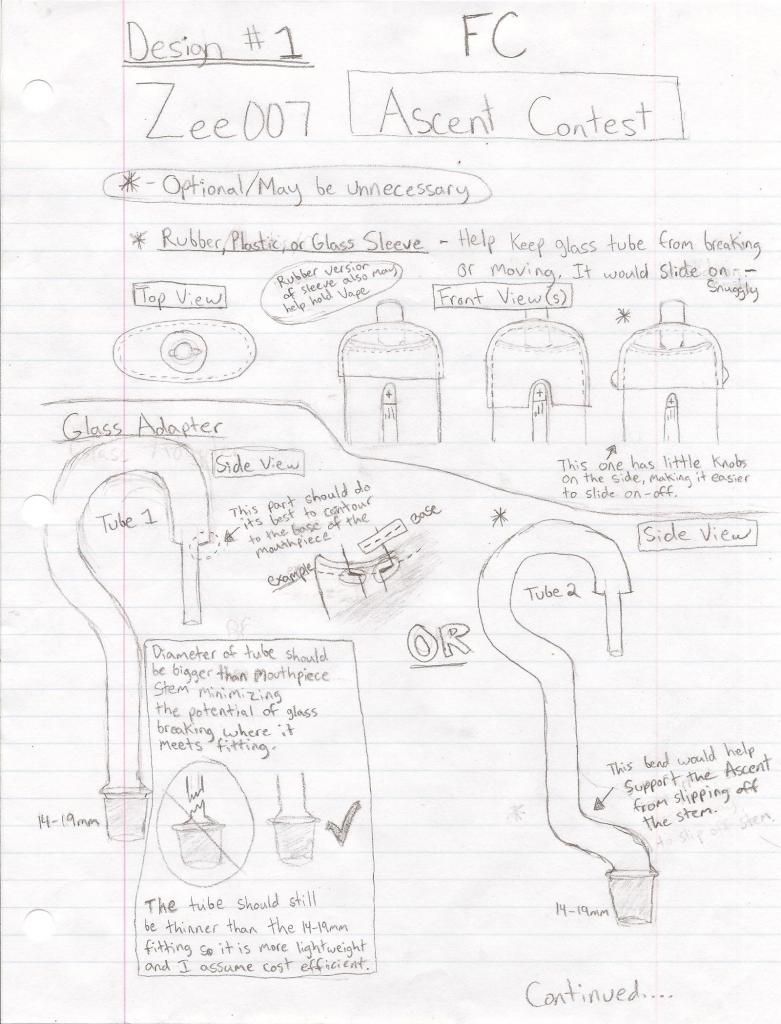 Design # 1
FC
Zee007
Ascent Contest
* - Optional/May be unnecessary
* Rubber, Plastic, or Glass Sleeve - Help keep glass tube from breaking
or moving. It would slide on -
Snuggly
Top View
Rubber version
of sleeve also may
help hold Vape
Front View(s)
*
+
+
+
This one has little knobs
on the side, making it easier
to slide on-off.
Glass Adapter
Side View
Tube 1
This part should do
it's best to contour
to the base of the
mouthpiece
Base
example
*
Side View
Tube 2
OR
Diameter of tube should
be bigger than mouthpiece
stem minimizing
the potential of glass
breaking where it
meets fitting.
14-19mm
The tube should still
be thinner than the 14-19mm
fitting so it is more lightweight
and I assume cost efficient.
This bend would help
support the Ascent
from slipping off
the stem.
to slip off stem.
14-19mm
Continued....